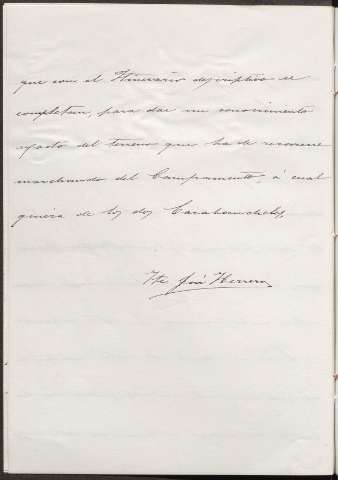 que con el Itinerario descriptivo se
completan, para dar un conocimiento
exacto del terreno que ha de recorrerse
marchando del Campamento, á cual
quiera de los dos Carabancheles,
José Herrero